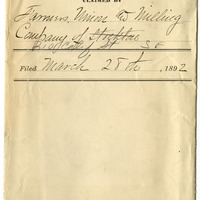 CLAIMED BY
Farmers Union & Milling
Company of Stockton
Filed March 28th, 1892